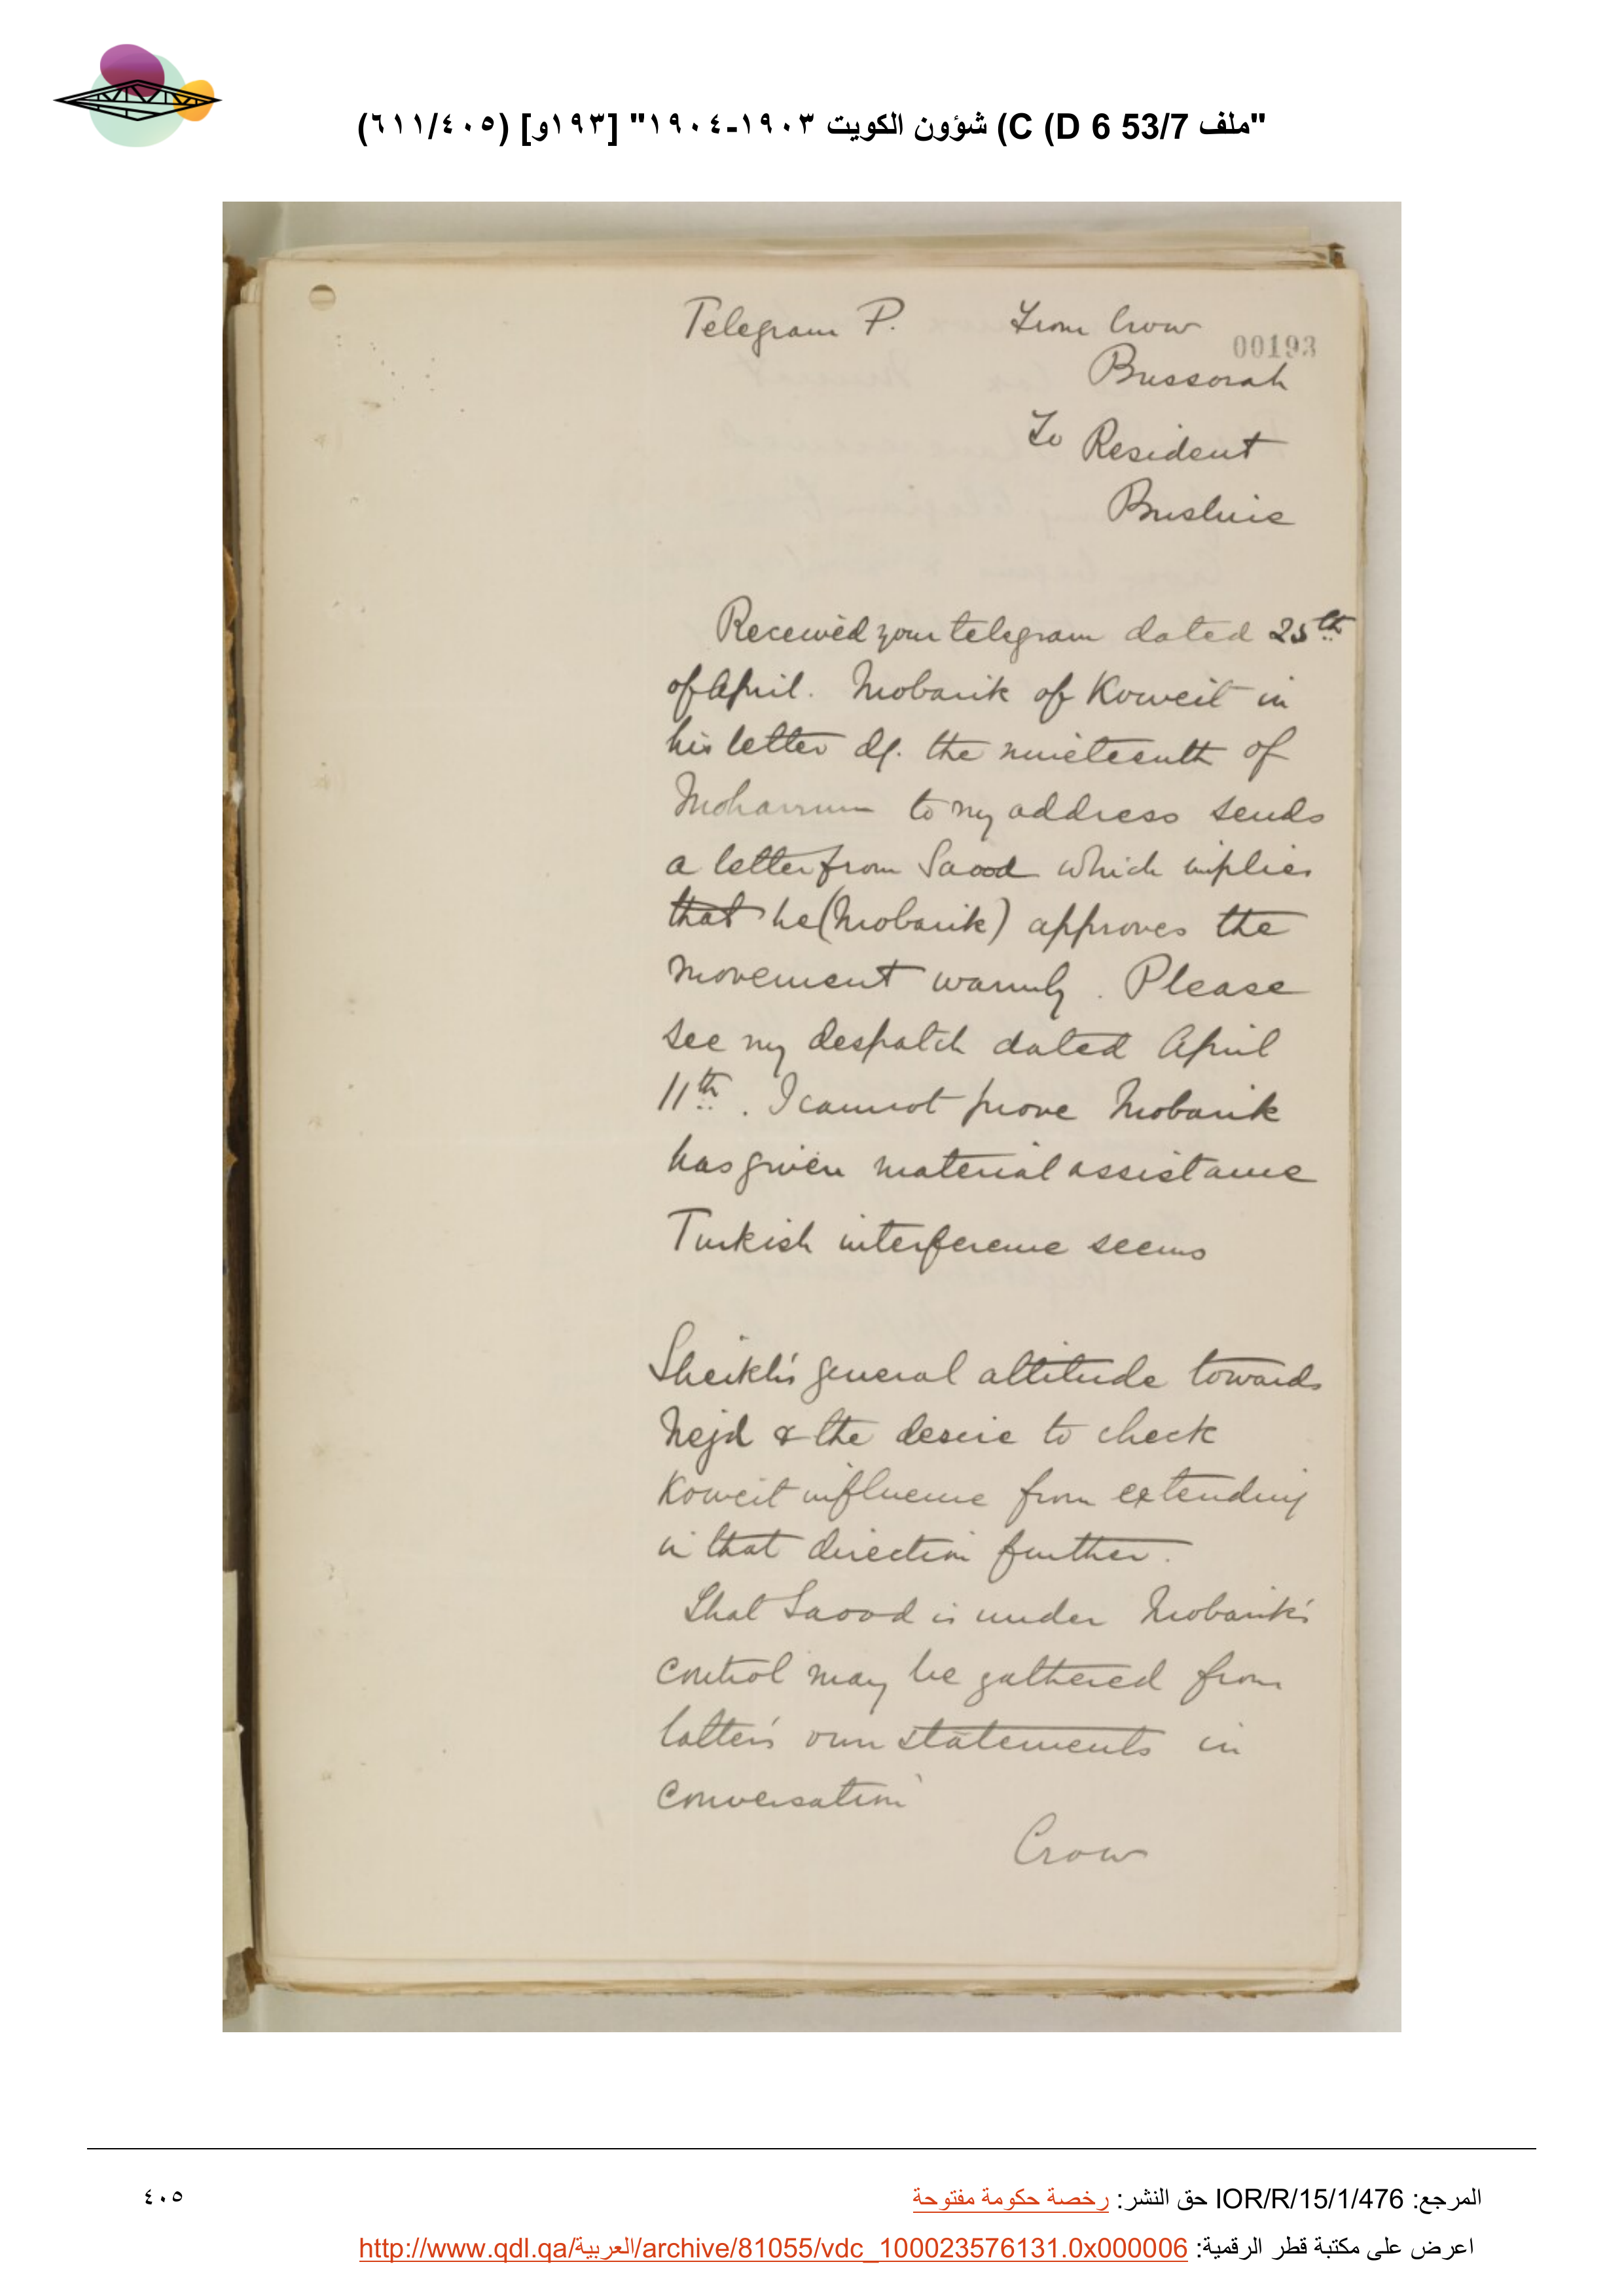 "ملف 53/7 C (D 6) شؤون الكويت ١٩٠٣-١٩٠٤" [١٩٣و] (٤٠٥/٦١١)
Telegram P. From Crow
00193
Bussorah
To Resident
Bushire
Received your telegram dated 25th
of April. Mobarik of Koweit in
his letter df. the nineteenth of
Moharrum to my address sends
a letter from Saood which implies
that he (Mobarik) approves the
movement warmly. Please
see my despatch dated April
11th. I cannot prove Mobarik
has given material assistance
Turkish interference seems
Sheikh's general attitude towards
Nejd & the desire to check
Koweit influence from extending
in that direction further.
That Saood is under Mobarik's
control may be gathered from
latter's own statements in
conversation
Crow
المرجع: IOR/R/15/1/476 حق النشر: رخصة حكومة مفتوحة
٤٠٥
اعرض على مكتبة قطر الرقمية: http://www.qdl.qa/العربية/archive/81055/vdc_100023576131.0x000006